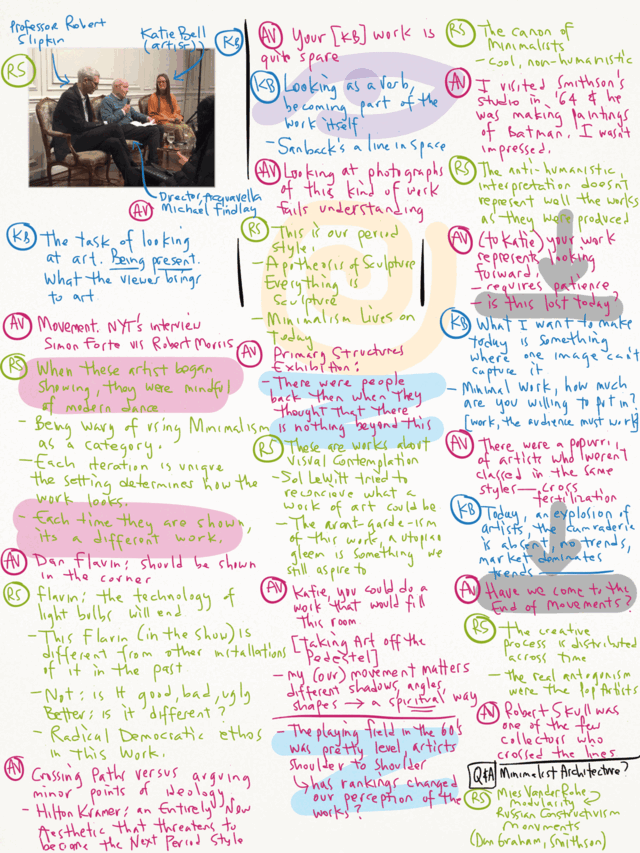 Professor Robert
Slifkin
Katie Bell
(artist)
KB
RS
Director Acquavella
Michael Findlay
AV
KB
The task of looking
at art. Being present.
What the viewer brings
to art
AV
Movement. NYT's interview
Simon Forte vis Robert Morris
RS
When these artist began
showing, they were mindful
of modern dance
- Being wary of using Minimalism
as a category.
- Each iteration is unique
the setting determines how the
work looks.
- Each time they are shown,
its a different work.
AV
Dan Flavin: should be shown
in the corner
RS
Flavin: the technology of
light bulbs will end
- This Flavin (in the show) is
different from other installations
of it in the past
- Not: is it good, bad, ugly
Better: is it different?
- Radical Democratic ethos
in this Work.
AV
Crossing Paths versus arguing
minor points of ideology
- Hilton Kramer: an Entirely New
Aesthetic that threatens to
become the Next Period Style
AV
Your [KB] work is
quite spare
KB
Looking as a verb,
becoming part of the
work itself
- Sanback's a line in space
AV
Looking at photographs
of this kind of work
fails understanding
RS
- This is our period
style:
- Apotheosis of Sculpture
Everything is
Sculpture
- Minimalism Lives on
Today
AV
Primary Structures
Exhibition:
- There were people
back then when they
thought that there
is nothing beyond this
RS
- These are works about
Visual Contemplation
- Sol LeWitt tried to
reconcieve what a
work of art could be
- The avant-garde-ism
of this work, a utopian
gleem is something we
still aspire to
AV
Katie, you could do a
work that would fill
this room
[Taking Art off the
Pedestel]
- my (our) movement matters
different shadows, angles,
shapes → a spiritual way
- The playing field in the 60's
was pretty level, artists
shoulder to shoulder
↳ has rankings changed
our perception of the
works?
RS
The canon of
Minimalists
- cool, non-humanistic
AV
I visited Smithson's
studio in '64 & he
was making paintings
of Batman. I wasn't
impressed.
RS
The anti-humanistic,
interpretation doesn't
represent well the works
as they were produced
AV
(to Katie) your work
represents looking
forward:
- requires patience
- is this lost today?
KB
What I want to make
today is something
where one image can't
capture it
- Minimal work, how much
are you willing to put in?
[work, the audience must work]
AV
There were a popurri
of artists who weren't
classed in the same
styles — cross
fertilization
KB
Today, an explosion of
artists, the camraderie
is absent, no trends,
market dominates
trends
AV
Have we come to the
End of Movements?
RS
- The creative
process is distributed
across time
- the real antagonism
were the Pop Artists
AV
Robert Skull was
one of the few
collectors who
crossed the lines
Q&A
Minimalist Architecture?
RS
Mies Vander Rohe
modularity
Russian Constructivism
Monuments
(Dan Graham, Smithson)